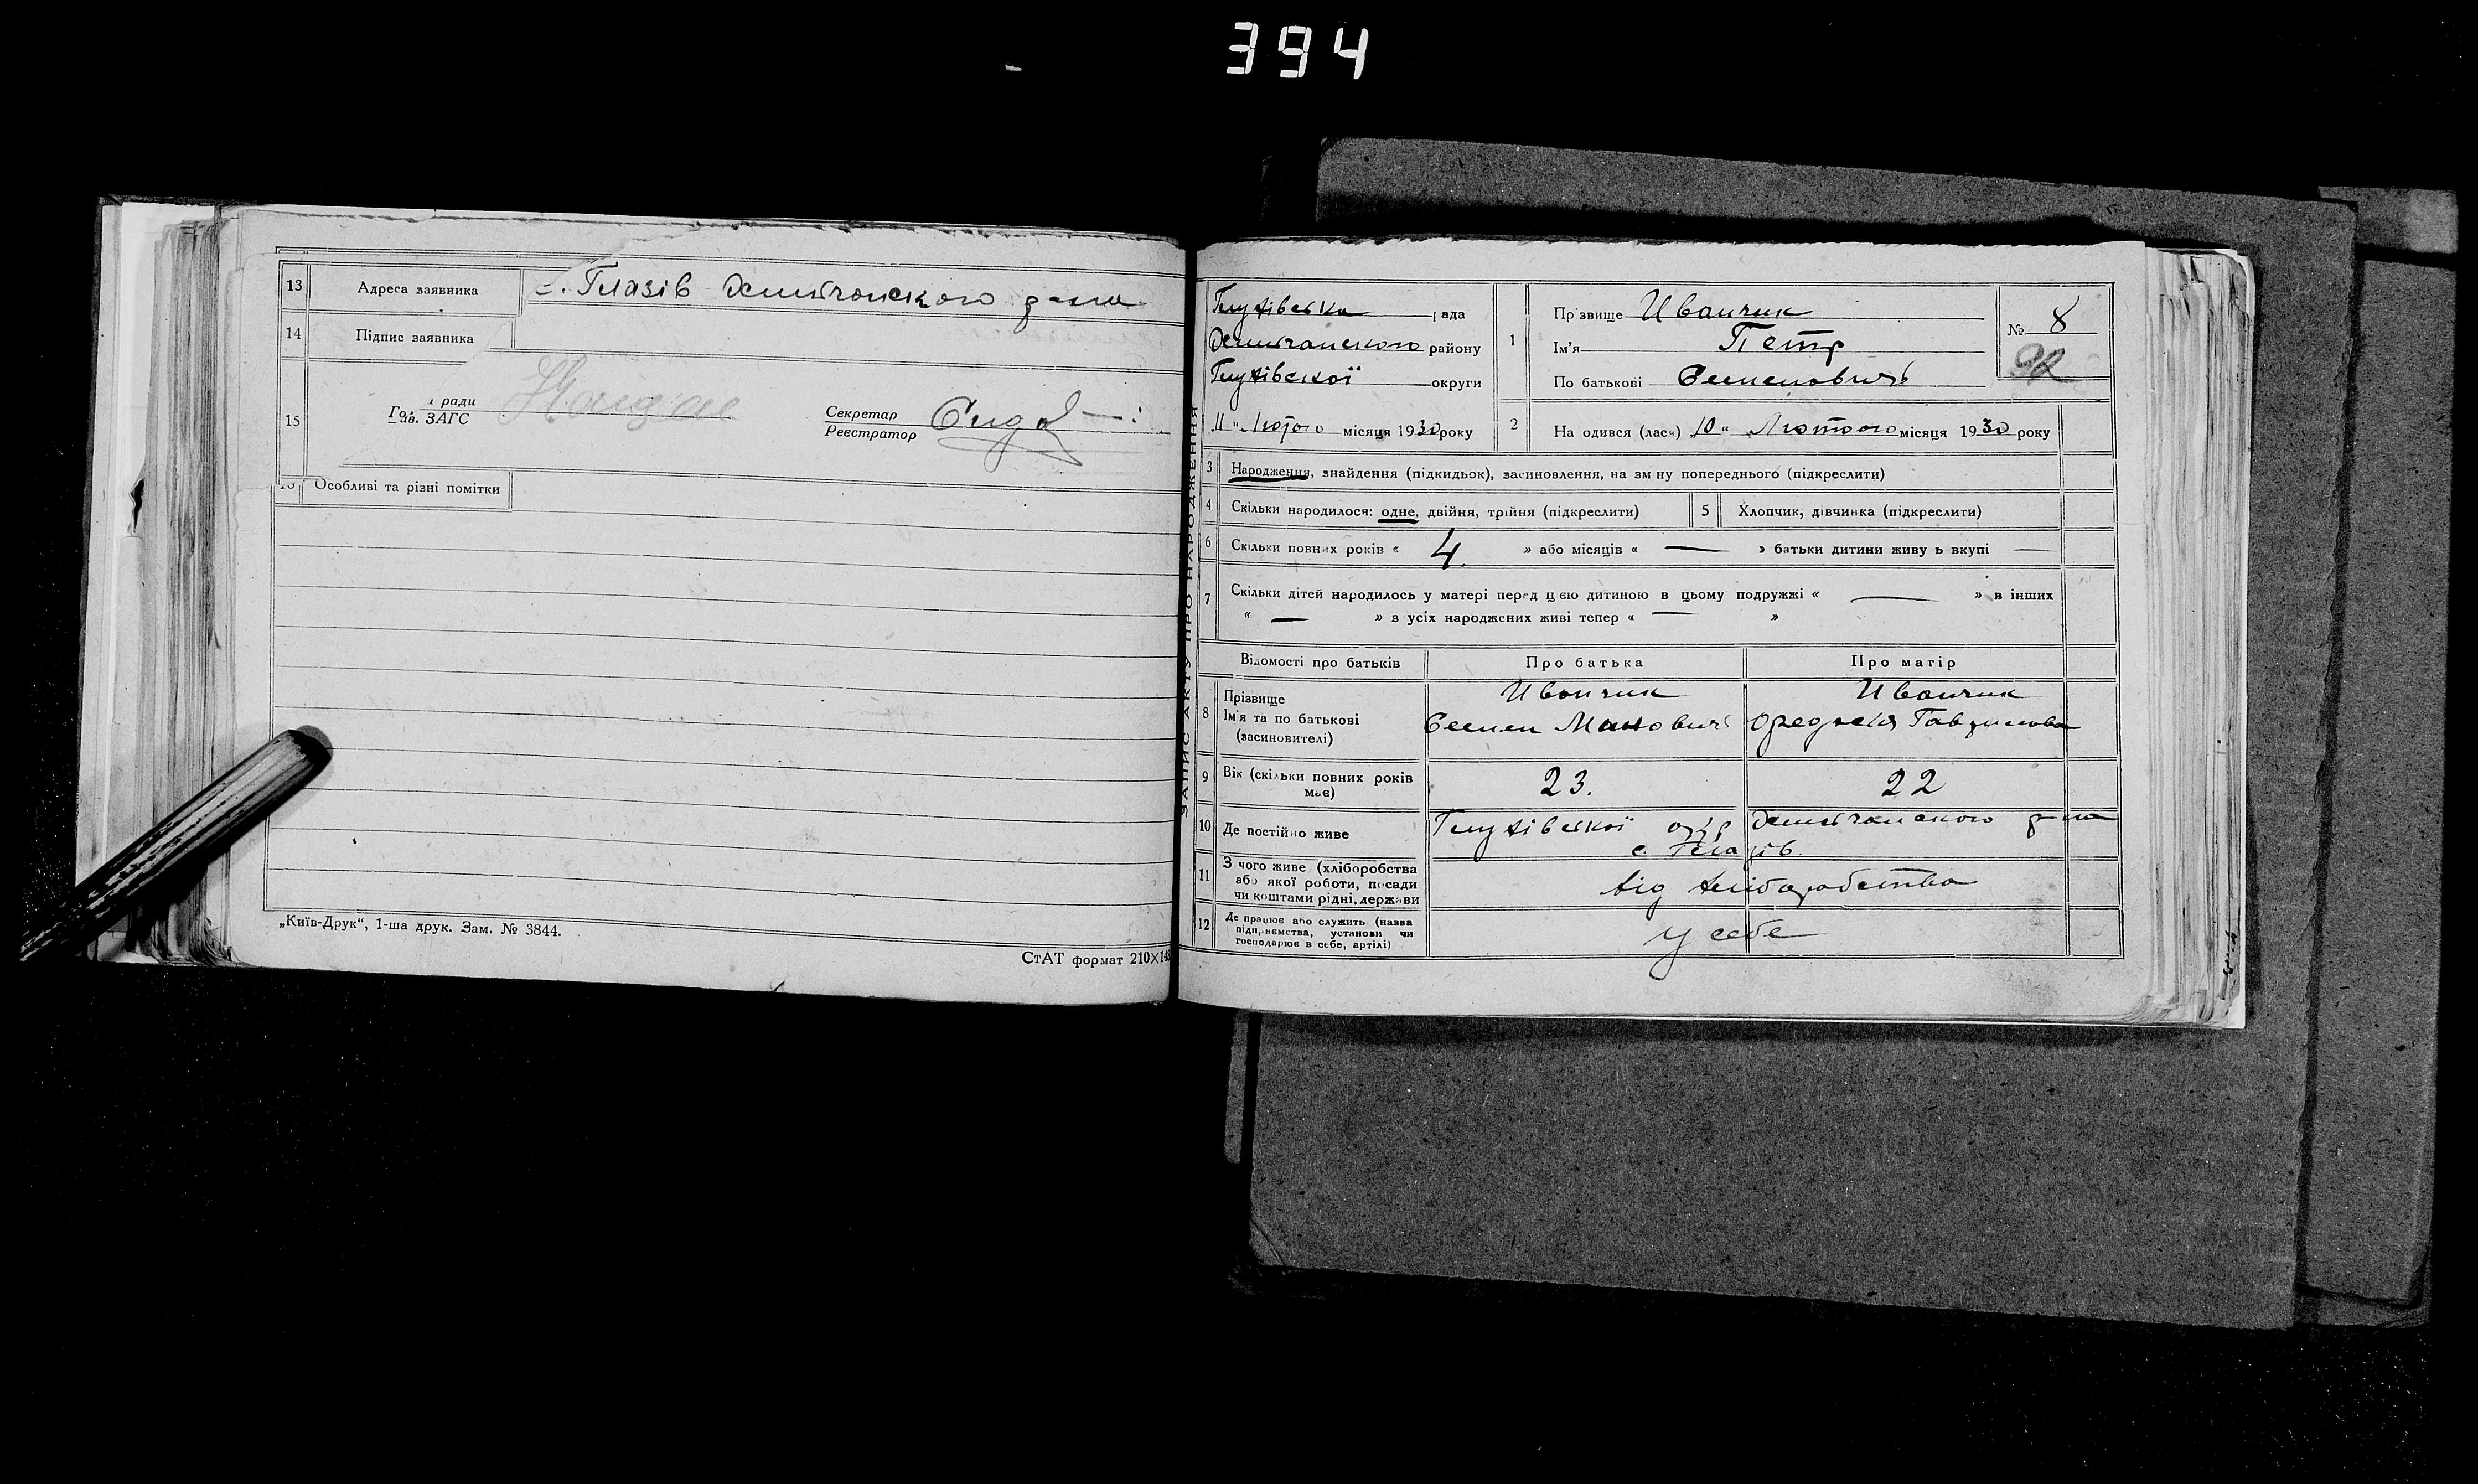 394
13 Адреса заявника с. Глазів Эсманського р-ну
14 Підпис заявника
ради
15 Зав. ЗАГС
Секретар
Реєстратор
Особливі та різні помітки
„Київ-Друк“, 1-ша друк. Зам. № 3844.
СтАТ формат 210×148
ЗАПИС АКТУ ПРО НАРОДЖЕННЯ
рада
району
Глухівської округи
11 " Лютого місяця 1930 року
1 Прізвище Иванчик
Ім'я Петр
По батькові Семенович
№ 8
92
2 Народився (лася) „10“ Лютого місяця 1930 року
3 Народження, знайдення (підкидьок), засиновлення, на зміну попереднього (підкреслити)
4 Скільки народилося: одне, двійня, трійня (підкреслити)
5 Хлопчик, дівчинка (підкреслити)
6 Скільки повних років « 4 » або місяців « — » батьки дитини живуть вкупі —
7 Скільки дітей народилось у матері перед цією дитиною в цьому подружжі « — » в інших
« — » з усіх народжених живі тепер « — »
Відомості про батьків Про батька Про матір
8 Прізвище Иванчик Иванчик
Ім'я та по батькові Семен
(засиновителі)
9 Вік (скільки повних років має) 23. 22
10 Де постійно живе Глухівської окр
с. Глазів.
11 З чого живе (хліборобства
або якої роботи, посади
чи коштами рідні, держави від хліборобства
12 Де працює або служить (назва
підприємства, установи чи
господарює в себе, артілі) у себе